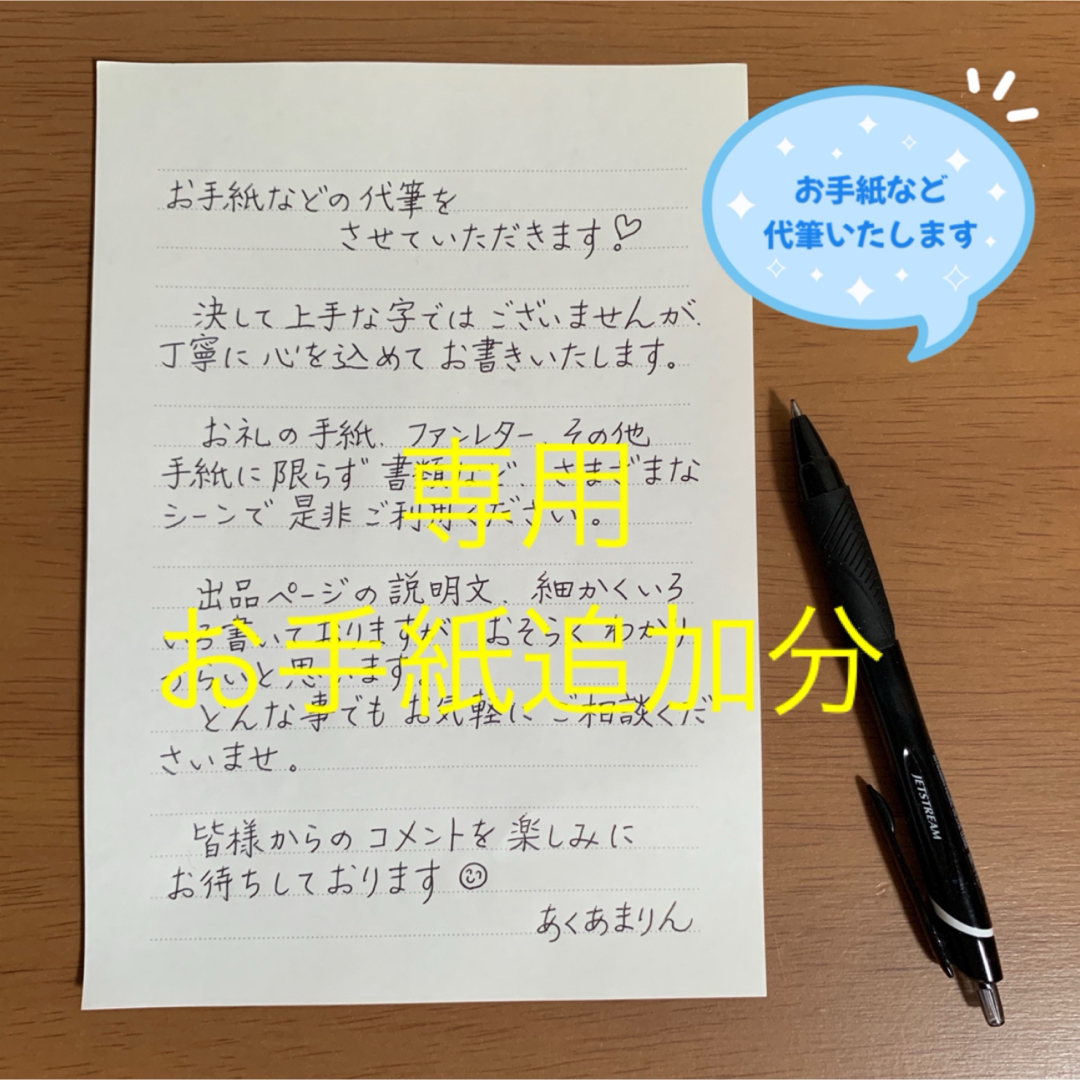 お手紙などの代筆を
させていただきます♡
決して上手な字ではございませんが、
丁寧に心を込めてお書きいたします。
お礼の手紙、ファンレター、その他
手紙に限らず書類など、さまざまな
シーンで是非ご利用ください。
出品ページの説明文、細かくいろ
いろ書いておりますが、おそらくわかり
づらいと思います。
どんな事でもお気軽にご相談くだ
さいませ。
皆様からのコメントを楽しみに
お待ちしております☺
あくあまりん
お手紙など
代筆いたします
専用
お手紙追加分
JETSTREAM